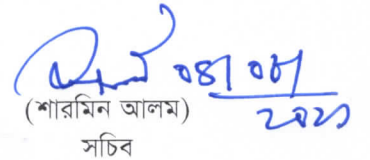 ০৪/০৮/২০২১
(শারমিন আলম)
সচিব